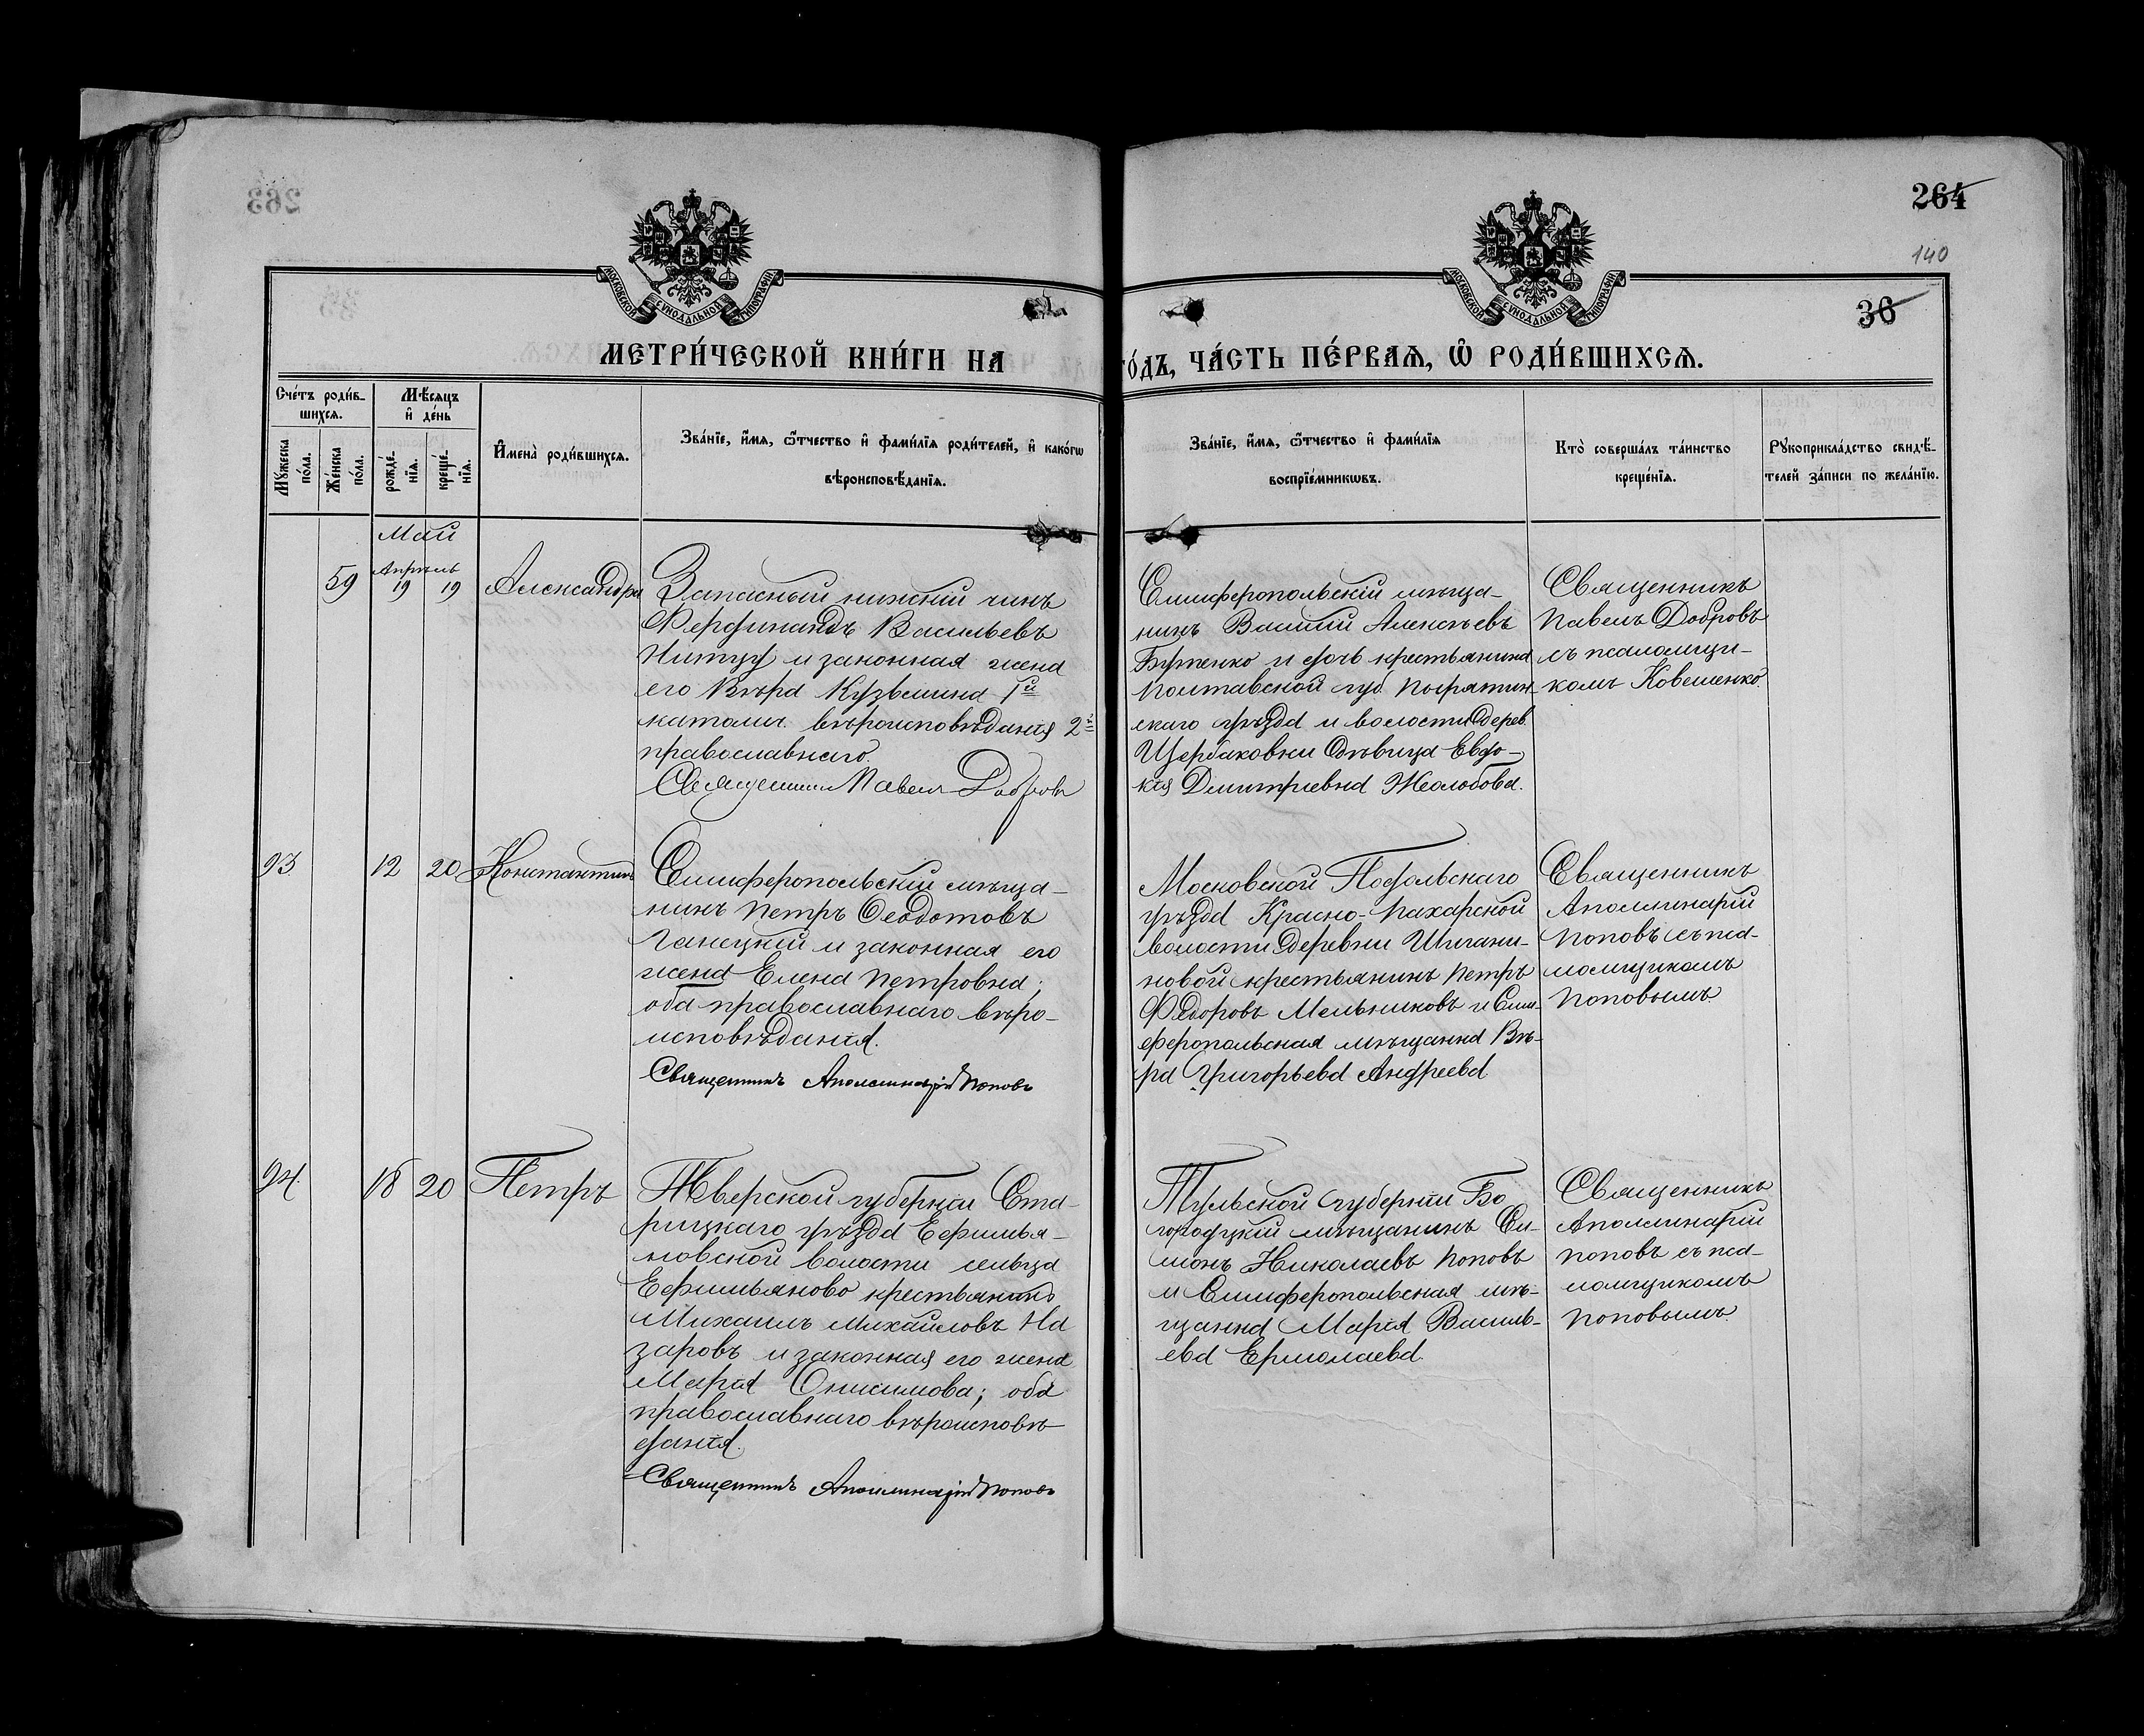 264
140
36
МОСКОВСКОЙ СУНОДАЛЬНОЙ ТИПОГРАФІИ
МОСКОВСКОЙ СУНОДАЛЬНОЙ ТИПОГРАФІИ
МЕТРИ́ЧЕСКОЙ КНИ́ГИ НА
ГО́ДЪ, ЧА́СТЬ ПЕ́РВАѦ, Ѡ҆ РОДИ́ВШИХСѦ.
Сче́тъ роди́в-
шихсѧ.
Мꙋ́жеска по́ла.
Же́нска по́ла.
Мѣ́сѧцъ
и҆ де́нь
рожде́-
нїѧ.
креще́-
нїѧ.
И҆мена̀ роди́вшихсѧ.
Зва́нїе, и҆́мѧ, ѻ҆́тчество и҆ фами́лїѧ роди́телей, и҆ како́гѡ
вѣроисповѣ́данїѧ.
Зва́нїе, и҆́мѧ, ѻ҆́тчество и҆ фами́лїѧ
воспрїе́мникѡвъ.
Кто̀ соверша́лъ та́инство
креще́нїѧ.
Рꙋкоприкла́дство свидѣ́-
телей за́писи по жела́нїю.
Май
Апрѣль
59 19 19 Александра
Запасный нижній чинъ
Фердинандъ Васильевъ
и законная жена
его Вѣра Кузьмина 1й
католич. вѣроисповѣданія 2я
православнаго.
Священникъ Павелъ Добровъ
Симферопольскій мѣща-
нинъ Василій Алексѣевъ
и дочь крестьянина
Полтавской губ. Пирятин-
скаго уѣзда и волости дерев.
Щербаковки дѣвица Евдо-
кія Димитріевна Жолобова.
Священникъ
Павелъ Добровъ
съ псаломщи-
комъ Ковешенко.
93 12 20 Константинъ
Симферопольскій мѣща-
нинъ Петръ Ѳеодотовъ
Ганецкій и законная его
жена Елена Петровна;
оба православнаго вѣро-
исповѣданія.
Священникъ Аполлинарій Поповъ
Московской Подольскаго
уѣзда Красно-Пахарской
волости деревни Шигани-
новой крестьянинъ Петръ
Ѳедоровъ Мельниковъ и Сим-
феропольская мѣщанка Вѣ-
ра Григорьева Андреева
Священникъ
Аполлинарій
Поповъ съ пса-
ломщикомъ
Поповымъ
94. 18 20 Петръ
Тверской губерніи Ста-
рицкаго уѣзда Ефимья-
новской волости сельца
Ефимьяново крестьянинъ
Михаилъ Михайловъ На
заровъ и законная его жена
Марія Онисимова; оба
православнаго вѣроисповѣ-
данія.
Священникъ Аполлинарій Поповъ
Тульской губерніи Бо
городицкій мѣщанинъ Си-
монъ Николаевъ Поповъ
и Симферопольская мѣ-
щанка Марія Василь-
ева Ермолаева.
Священникъ
Аполлинарій
Поповъ съ пса-
ломщикомъ
Поповымъ.